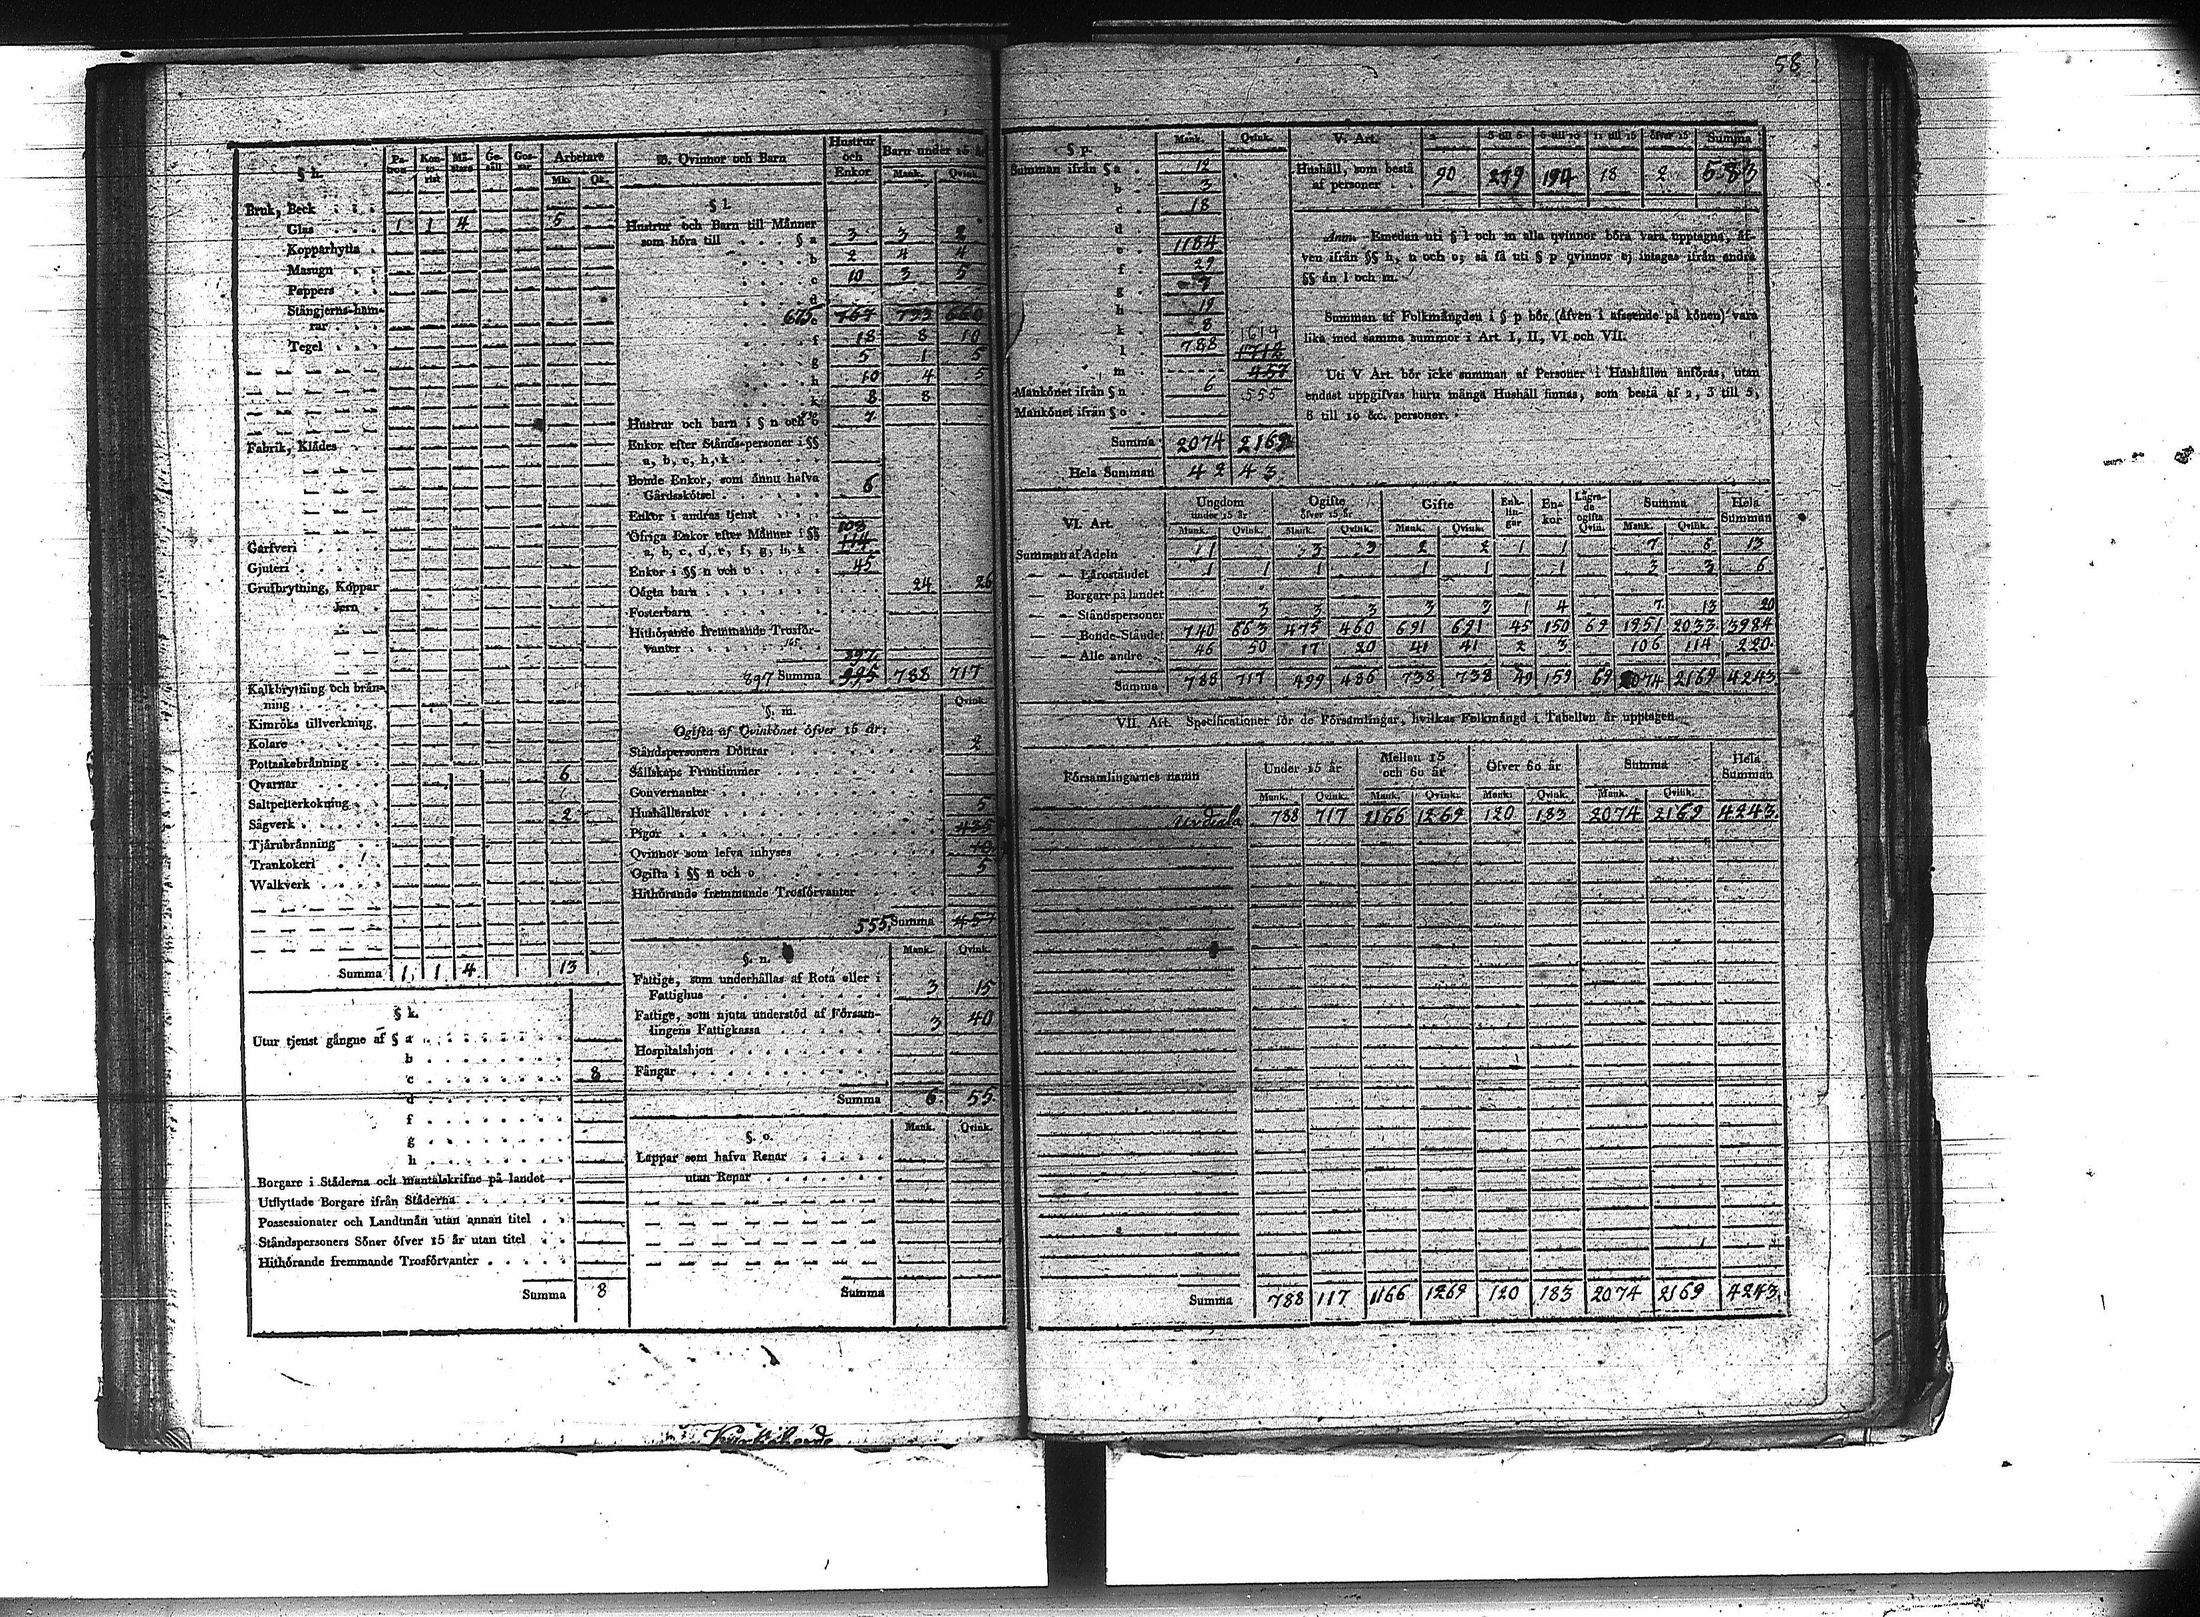 58
§ h.
Pa-tron
Kon-to-rist
Mä-stare
Ge-säll
Gos-sar
Arbetare
Mk.
Qk.
Bruk, Beck
Glas 1 1 4 5
Kopparhytta
Masugn
Pappers
Stångjerns-ham-
rar
Tegel
Fabrik, Klädes
Garfveri
Gjuteri
Grufbrytning, Koppar
Jern
Kalkbrytning och brän-
ning
Kimröks tillverkning
Kolare
Pottaskebränning
Qvarnar 6
Saltpetterkokning
Sågverk 2
Tjärubränning
Trankokeri
Walkverk
Summa 1 1 4 13
§ k.
Utur tjenst gångne af § a
b
c 8
d
f
g
h
Borgare i Städerna och mantalskrifne på landet
Utflyttade Borgare ifrån Städerna
Possessionater och Landtmän utan annan titel
Ståndspersoners Söner öfver 15 år utan titel
Hithörande fremmande Trosförvanter
Summa 8
B. Qvinnor och Barn
Hustrur och Enkor
Barn under 15 år
Mank. Qvink.
§ l.
Hustrur och Barn till Männer
som höra till § a 3 3 2
b 2 4 4
c 10 3 5
d
675 e 767 733 660
f 18 8 10
g 5 1 5
h 10 4 5
k 8 8
Hustrur och barn i § n och o 7
Enkor efter Stånds-personer i §§
a, b, c, h, k
Bonde Enkor, som ännu hafva
Gårdsskötsel 6
Enkor i andras tjenst
103
Öfriga Enkor efter Männer i §§
a, b, c, d, e, f, g, h, k 114
Enkor i §§ n och o 45
Oägta barn 24 26
Fosterbarn
Hithörande fremmande Trosför-
vanter
897
897 Summa 995 788 717
§. m.
Qvink.
Ogifta af Qvinkönet öfver 15 år:
Ståndspersoners Döttrar 2
Sällskaps Fruntimmer
Gouvernanter
Hushållerskor 5
Pigor 435
Qvinnor som lefva inhyses 10
Ogifta i §§ n och o 5
Hithörande fremmande Trosförvanter
555 Summa 457
§. n.
Mank. Qvink.
Fattige, som underhållas af Rota eller i
Fattighus 3 15
Fattige, som njuta understöd af Försam-
lingens Fattigkassa 3 40
Hospitalshjon
Fångar
Summa 6 55
§. o.
Mank. Qvink.
Lappar som hafva Renar
utan Renar
Summa
§ p.
Mank. Qvink.
Summan ifrån § a 12
b 3
c 18
d
e 1184
f 29
g 7
h 19
k 8 1614
l 788 1712
m 457
Mankönet ifrån § n 6 555
Mankönet ifrån § o
Summa 2074 2169
Hela Summan 42 43
V. Art.
2 3 till 5 6 till 10 11 till 15 öfver 15 Summa
Hushåll, som bestå
af personer 90 279 194 18 2 583
Anm. Emedan uti § l och m alla qvinnor böra vara upptagna, äf-
ven ifrån §§ h, n och o, så få uti § p qvinnor ej intagas ifrån andra
§§ än l och m.
Summan af Folkmängden i § p bör (äfven i afseende på könen) vara
lika med samma summor i Art. I, II, VI och VII.
Uti V Art. bör icke summan af Personer i Hushållen anföras, utan
endast uppgifvas huru många Hushåll finnas, som bestå af 2, 3 till 5,
6 till 10 &c. personer.
VI. Art.
Ungdom under 15 år
Ogifte öfver 15 år
Gifte
Enk-lin-gar
En-kor
Lägra-de ogifta Qvin.
Summa
Hela Summan
Mank. Qvink. Mank. Qvink. Mank. Qvink. Mank. Qvink.
Summan af Adeln 1 3 3 2 2 1 1 7 6 13
Lärostandet 1 1 1 1 1 1 3 3 6
Borgare på landet
Ståndspersoner 3 3 3 3 3 1 4 7 13 20
Bonde-Ståndet 740 663 475 460 691 691 45 150 69 1951 2033 3984
Alle andre 46 50 17 20 41 41 2 3 106 114 220
Summa 788 717 499 486 738 738 49 159 69 2074 2169 4243
VII. Art. Specificationer för de Församlingar, hvilkas Folkmängd i Tabellen är upptagen.
Församlingarnes namn
Under 15 år
Mellan 15 och 60 år
Öfver 60 år
Summa
Hela Summan
Mank. Qvink. Mank. Qvink. Mank. Qvink. Mank. Qvink.
Urdiala 788 717 1166 1269 120 183 2074 2169 4243
Summa 788 717 1166 1269 120 183 2074 2169 4243